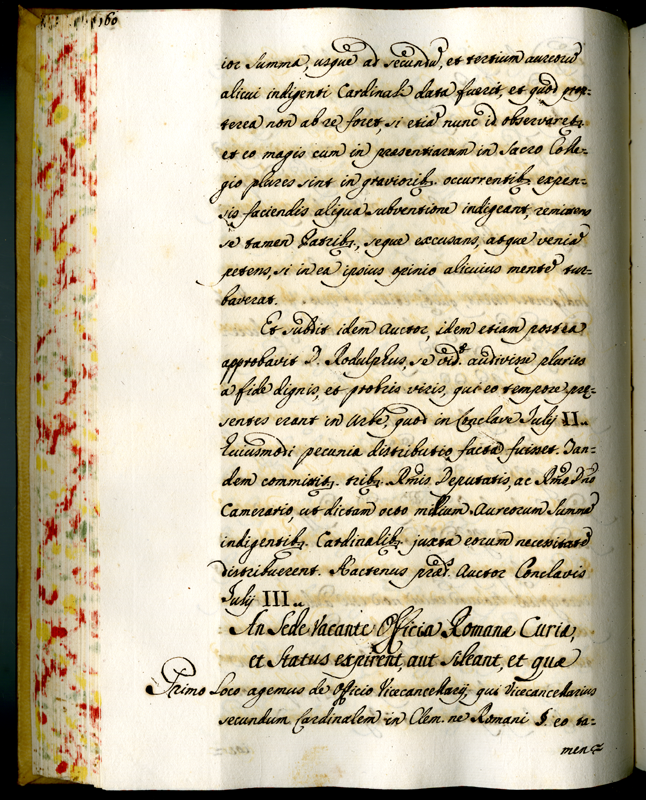 160
ior summa, usque ad secundũ, et tertium aureorũ
alicui indigenti Cardinali data fuerit, et quod prop:
terea non ab re foret, si etiã nunc id observaret,
et eo magis cum in praesentiarum in Sacro Colle:
gio plures sint in graviorib. occurrentib. expen:
sis faciendis aliqua subventione indigeant, remittens
se tamen Patrib., seque excusans, atque veniã
petens, si in ea ipsius opinio alicuius mentẽ tur:
baverat.
Et subdit idem Auctor, idem etiam postea
approbavit D. Rodulphus, se vid.t audivisse pluries
a fide dignis, et probis viris, qui eo tempore prę:
sentes erant in Urbe, quod in Conclave Julij II..
huiusmodi pecunia distributio facta fuisset. Tan:
dem commitit. trib. Rmis Deputatis, ac Rmo Dno
Camerario, ut dictam octo millium Aureorum Summã
indigentib. Cardinalib. juxta eorum necessitatẽ
distribuerent. Hactenus præd. Auctor Conclavis
Julij III..
An Sede Vacante Officia Romana Curia,
et Status expirent, aut sileant, et quæ
Primo Loco agemus de Officio Vicecancellarij, qui Vicecancellarius
secundum Cardinalem in Clem. ne Romani §. eo ta:
men